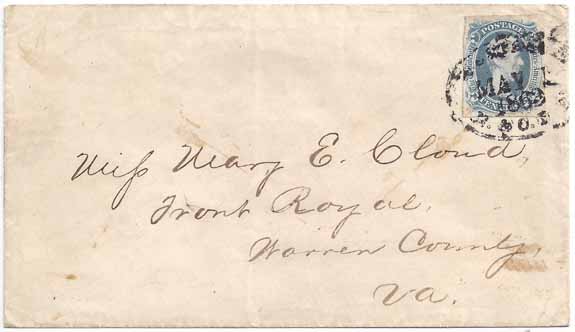 POSTAGE
MAY
1863
Miss Mary E. Cloud,
Front Royal,
Warren County,
Va.